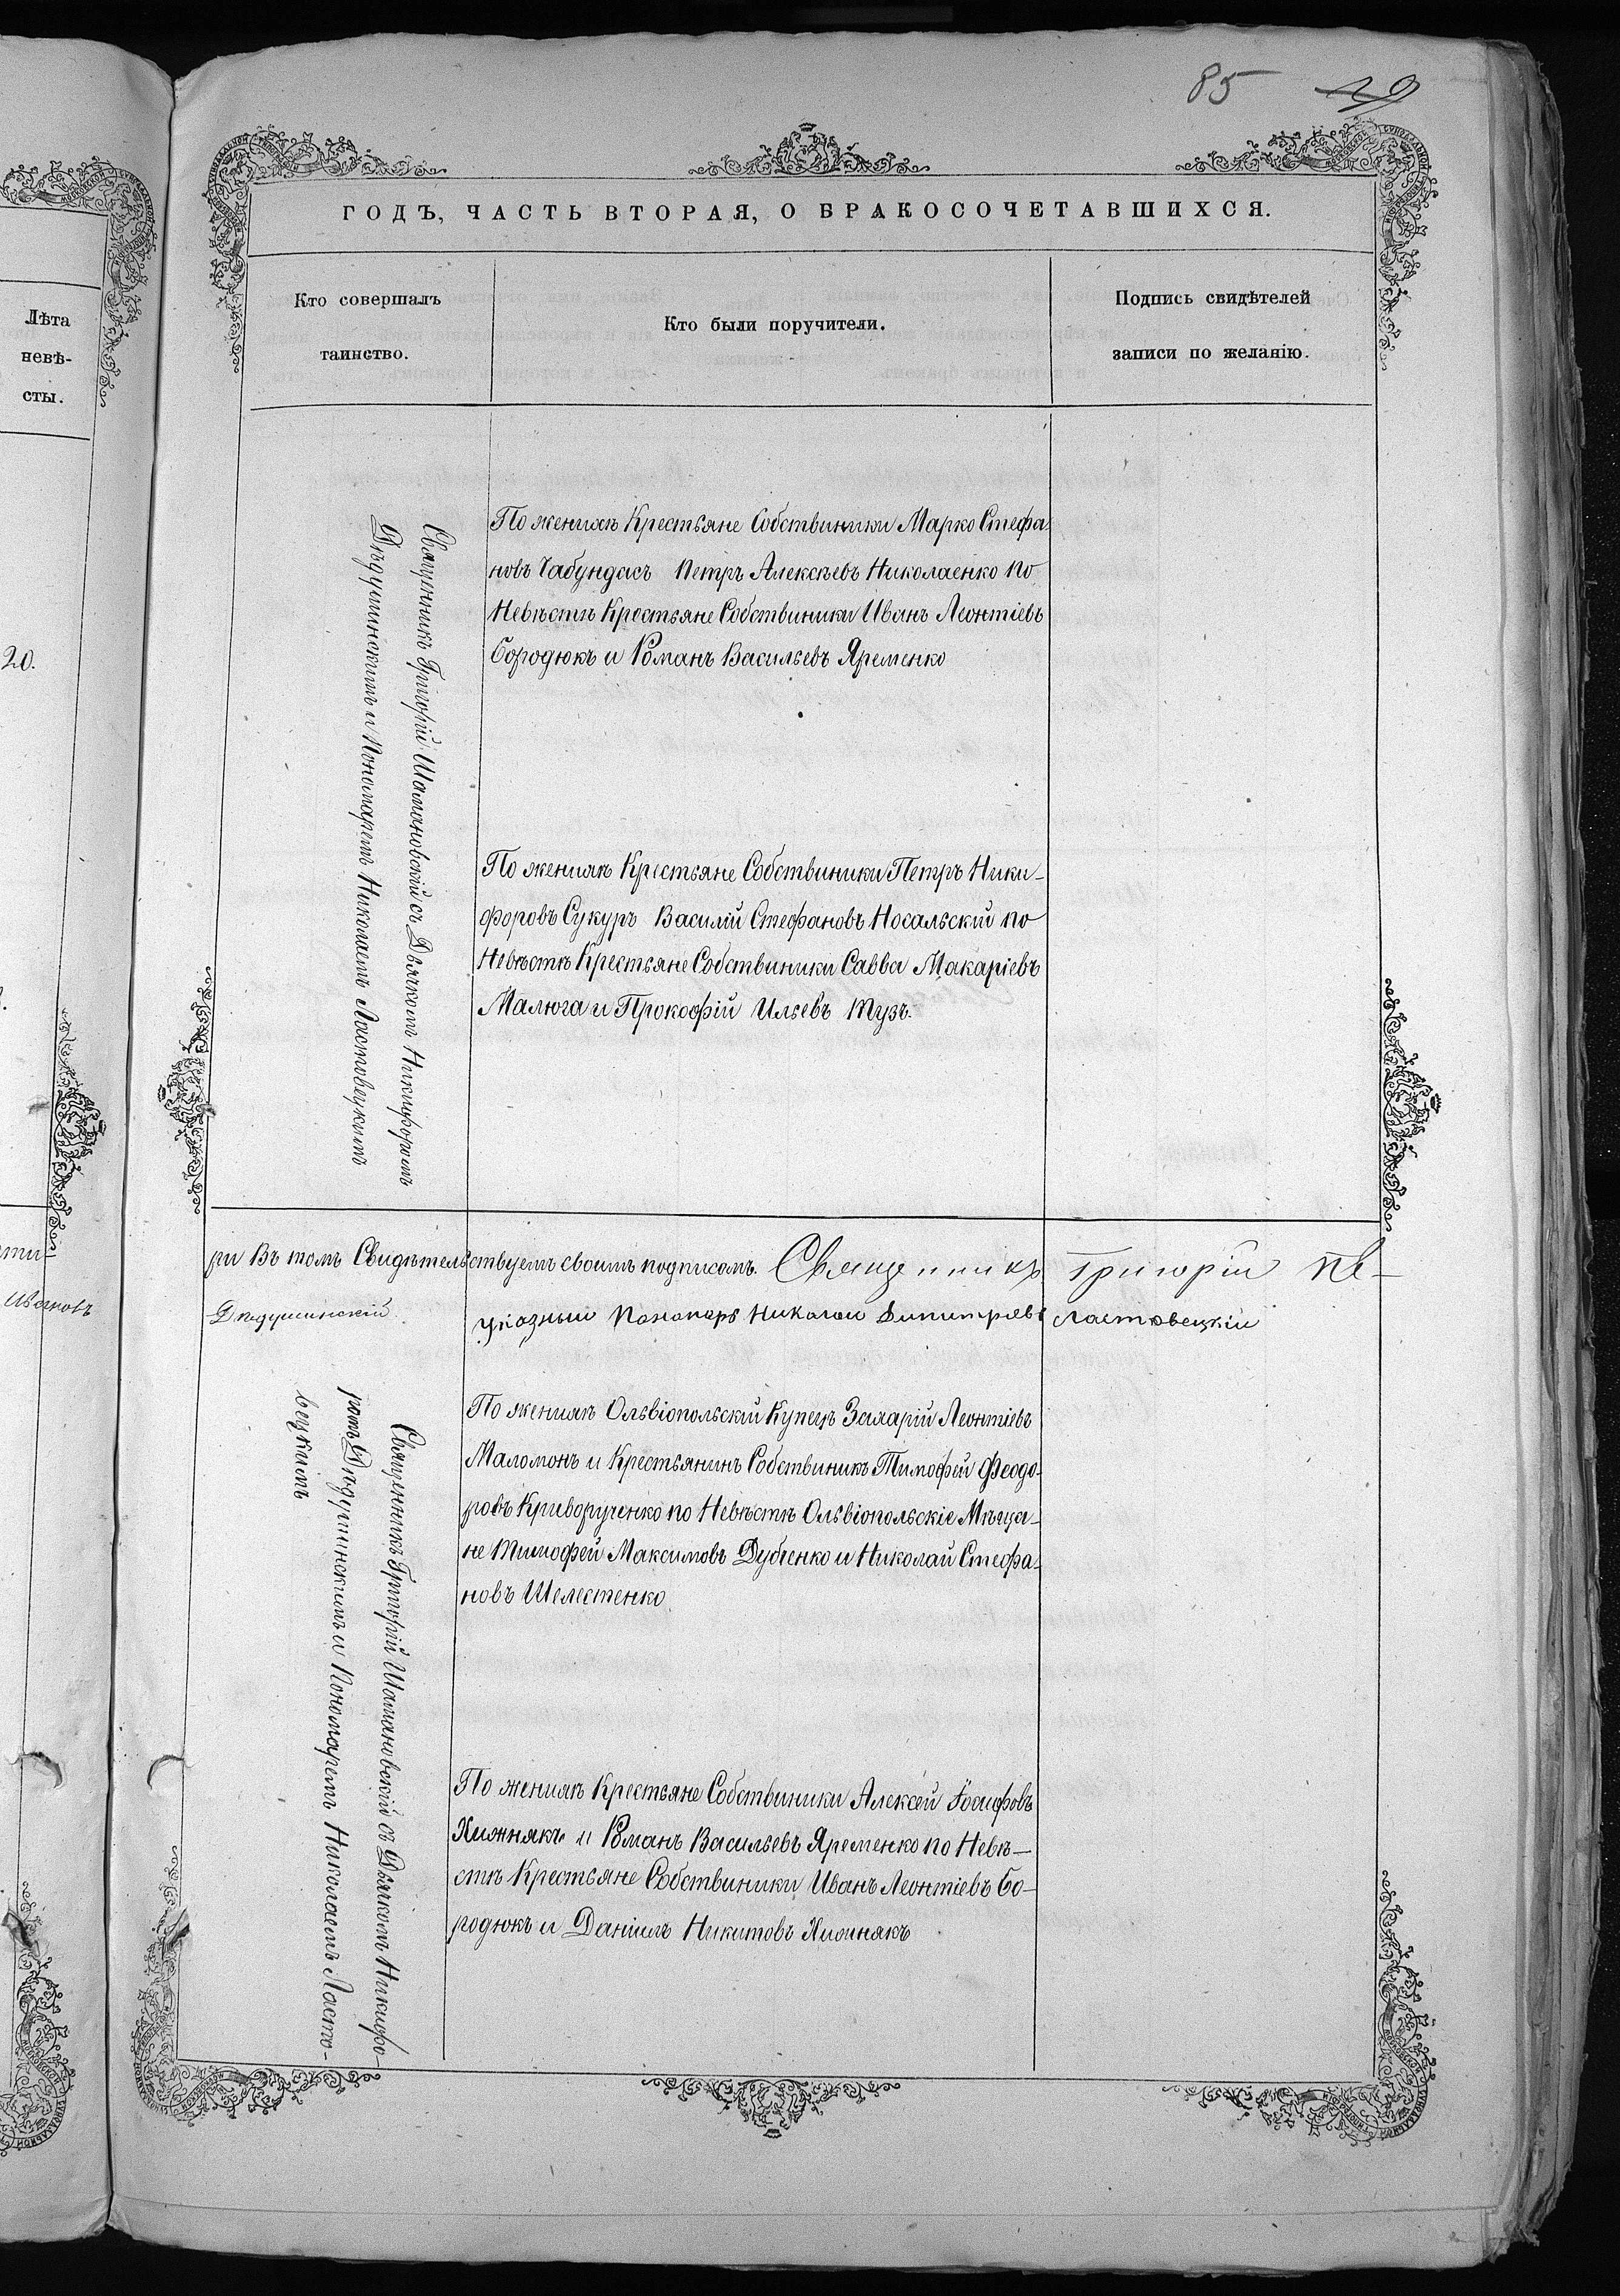 85 29
ГОДЪ, ЧАСТЬ ВТОРАЯ, О БРАКОСОЧЕТАВШИХСЯ.
Лѣта
невѣ-
сты.
Кто совершалъ
таинство.
Кто были поручители.
Подпись свидѣтелей
записи по желанію.
20.
Священникъ Григорій Шамановскій съ Дьячкомъ Никифоромъ
Дѣдушинскимъ и Пономаремъ Николаемъ Ластовецкимъ
По женихѣ Крестьяне Собствиники Марко Стефа
новъ Чабундасъ Петръ Алексѣевъ Николаенко по
Невѣстѣ Крестьяне Собствиники Иванъ Леонтіевъ
Бородюкъ и Романъ Васильевъ Яременко
По женихѣ Крестьяне Собствиники Петръ Ники-
форовъ Сукуръ Василій Стефановъ Носальский по
Невѣстѣ Крестьяне Собствиники Савва Макаріевъ
Малюга и Прокофій Ильевъ Тузъ.
ри Въ томъ Свидѣтельствуемъ своимъ подписомъ. Священникъ Григорій
Дѣдушинскій. указный Пономарь Николай Димитріевъ Ластовецкій
Священникъ Григорій Шамановскій съ Дьячкомъ Никифо-
ромъ Дѣдушинскимъ и Пономаремъ Николаемъ Ласто-
вецкимъ
По женихѣ Ольвіопольскій Купецъ Захарій Леонтіевъ
Маломонъ и Крестьянинъ Собствиникъ Тимофей Феодо-
ровъ Криворученко по Невѣстѣ Ольвіопольскіе Мѣща-
не Тимофей Максимовъ Дубченко и Николай Стефа-
новъ Шелестенко
По женихѣ Крестьяне Собствиники Алексей Іосифовъ
Хижнякъ и Романъ Васильевъ Яременко по Невѣ-
стѣ Крестьяне Собствиники Иванъ Леонтіевъ Бо-
родюкъ и Даніилъ Никитовъ Хижнякъ